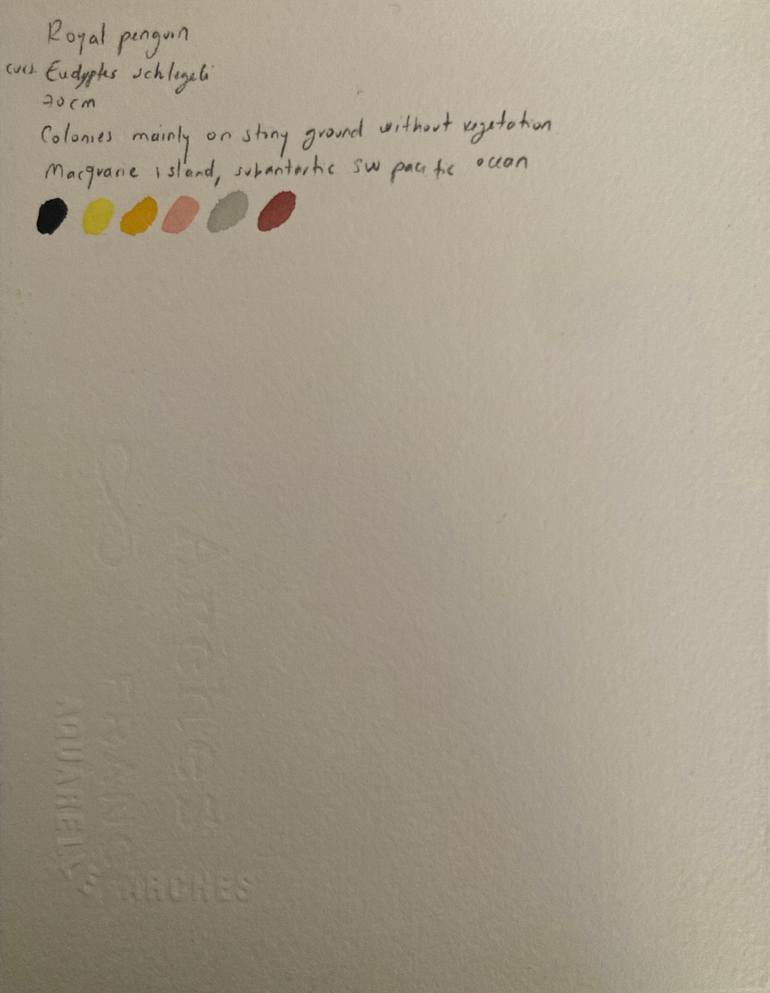 Royal penguin
Eudyptes schlegeli
70cm
Colonies mainly on stony ground without vegetation
Macquarie island, subantartic SW pacific ocean
Arches
FRANCE
AQUARELLES ARCHES